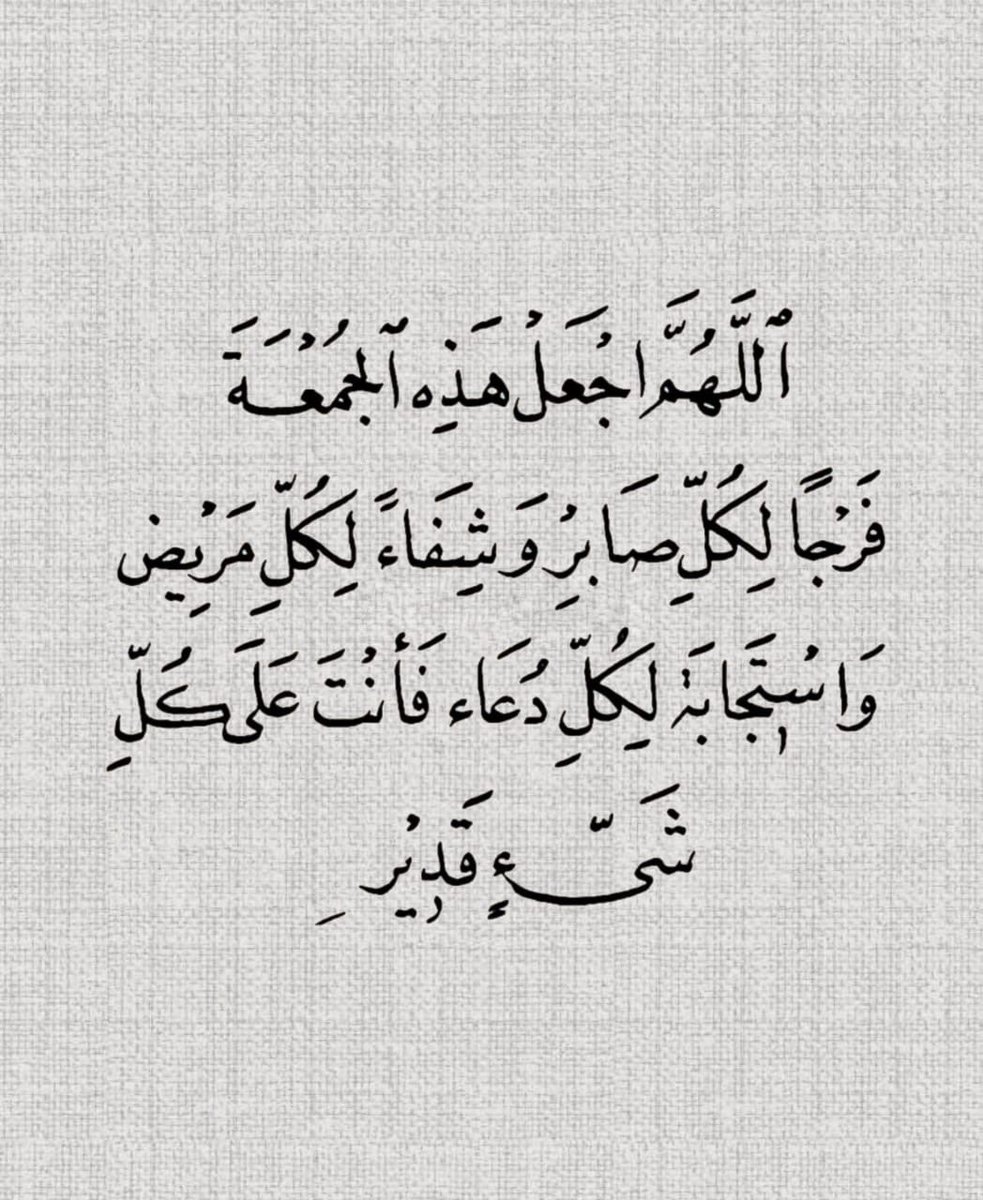 ٱللَّهُمَّ اجْعَلْ هَذِهِ ٱلجُمُعَةَ
فَرْجًا لِكُلِّ صَابِرِ وَشِفَاءً لِكُلِّ مَرِيْضِ
وَاسْتِجَابَة لِكُلِّ دُعَاء فَأَنْتَ عَلَى كُلِّ
شَيّءٍ قَدِيْرِ